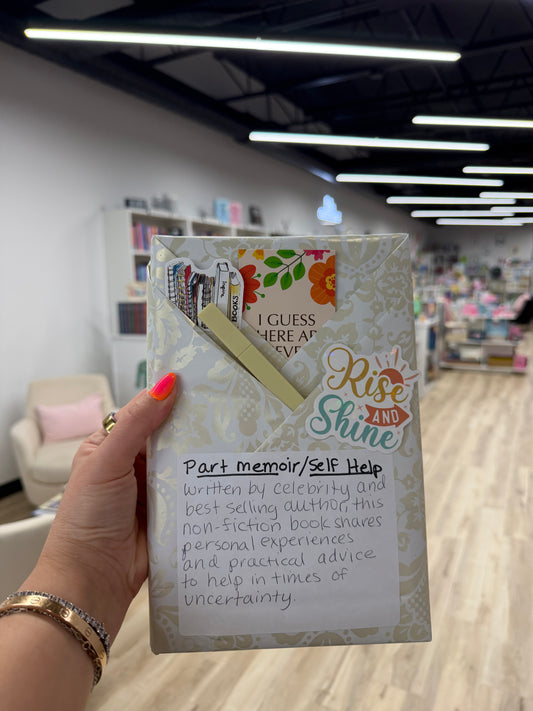 BOOKS
I GUESS
HERE AR
EVE
Rise
AND
Shine
Part memoir/Self Help
Written by celebrity and
best selling author, this
non-fiction book shares
personal experiences
and practical advice
to help in times of
uncertainty.